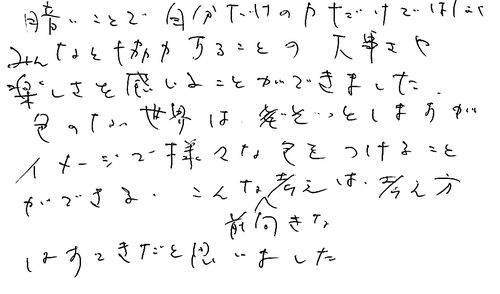 暗いことで自分だけの力だけではなく
みんなと協力することの大事さや
楽しさを感じることができました。
色のない世界は、発そっとしますが
イメージで様々な色をつけること
ができる。こんな考えは、考え方
前向きな
はすてきだと思いました